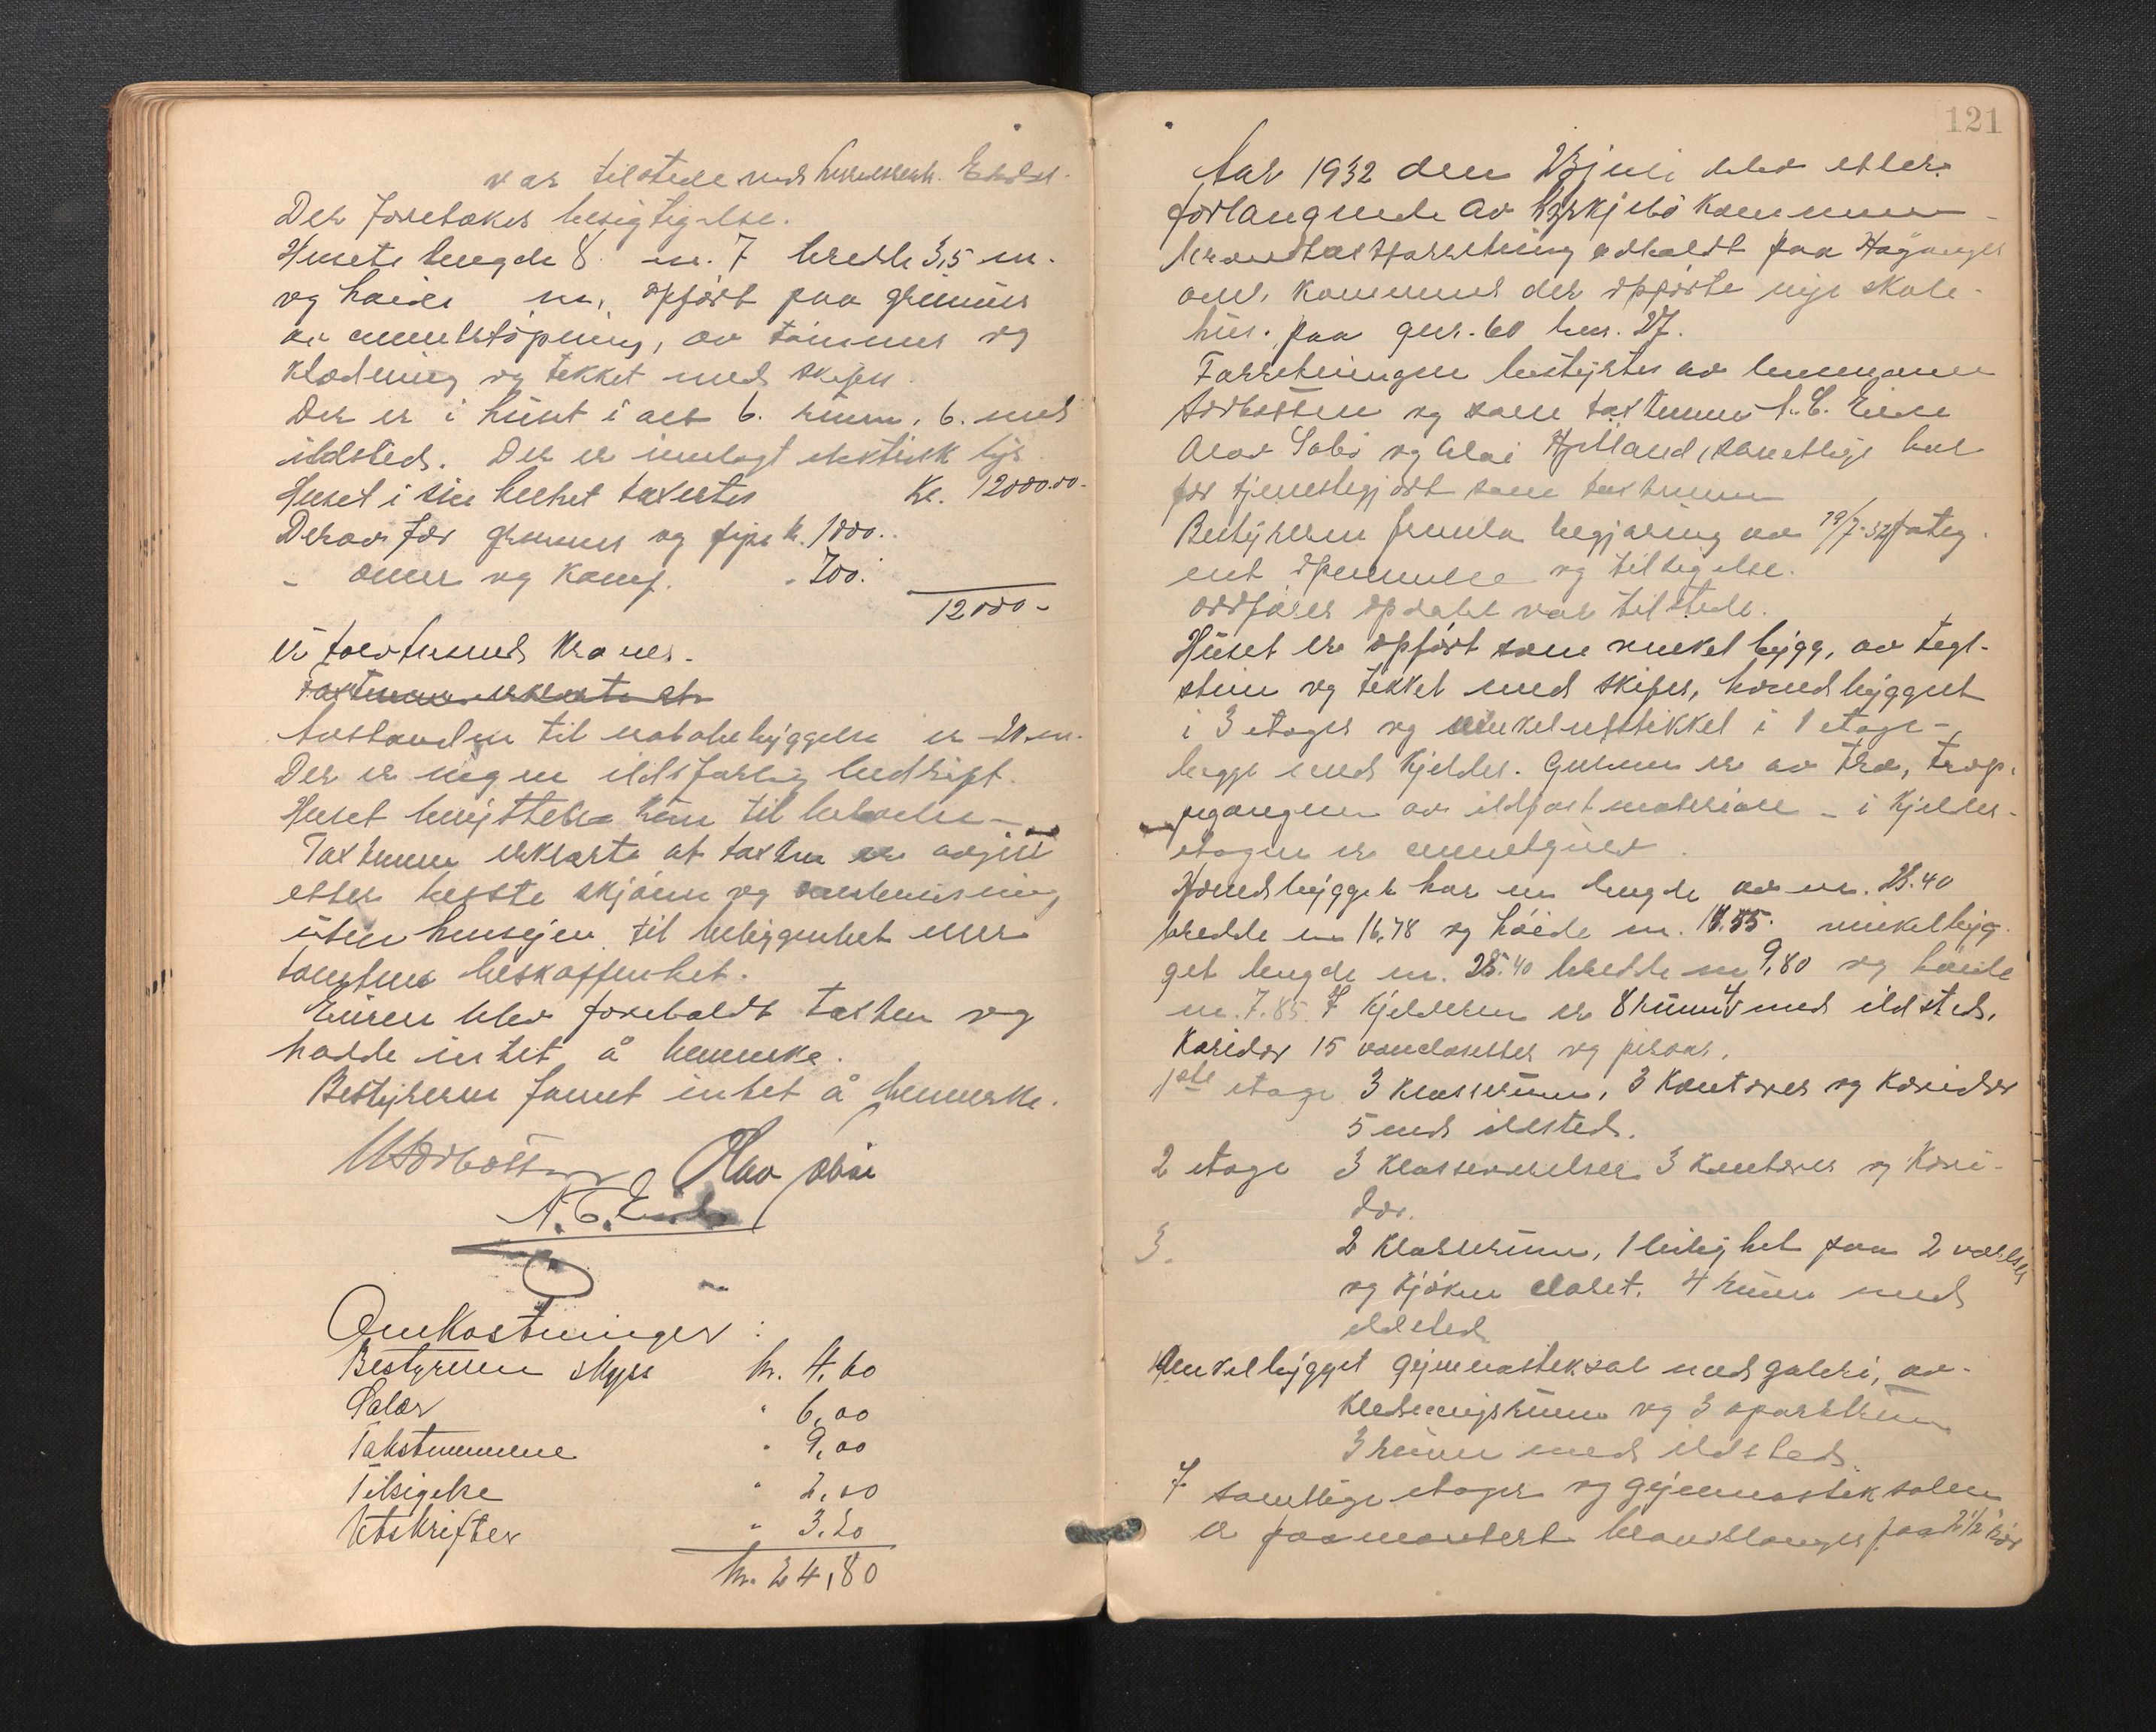 var tilstede med
Der foretokes besigtigelse.
Husets lengde 8 m. 7 bredde 3,5 m.
og høide m, opført paa grunmur
av cementstøpning, av tømmer og
klædning og tekket med skifer.
Der er i huset i alt 6. rum, 6. med
ildsted. Der er innlagt elektrisk lys.
Huset i sin helhet taxertes Kr. 12000.00-
Derav for grunmur og pipe k. 1000..
- ovner og komf. " 700.
12000-
er tolvtusend kroner.
Taxtmenn erklærte at
Avstanden til nabobebyggelse er 20 m.
Der er ingen ildsfarlig bedrift.
Huset benyttes kun til beboelse -
Taxtmenn erklærte at taxten er avgitt
efter beste skjønn og overbevisning
uten hensyn til beliggenhet eller
tomtens beskaffenhet.
Eieren blev foreholdt taxten og
hadde intet å bemerke.
Bestyreren fannt intet å bemerke.
Olav Søbø
A. E. Eide
Omkostninger :
Bestyreren skyss kr. 4,60
Salær " 6,00
Takstmennene " 9,00
Tilsigelse " 2,00
Utskrifter " 3.20
kr. 24,80
121
Aar 1932 den 23 juli blev efter
forlangende av Kyrkjebø kommune
brandtaxtforretning avholdt paa Høyanger
over kommunes der opførte nye skole-
hus. paa gnr. 60 bnr. 27.
Forretningen bestyrtes av lensmann
Sørbotten og som taxtmenn A. E. Eide
Olav Søbø og Olai Hjetland, samtlige har
før tjenestegjort som taxtmenn
Bestyreren fremla begjæring av 19/7-32 pateg.
ent opnevnelse og tilsigelse.
ordfører Opdahl var tilstede.
Huset er opført som vinkelbygg, av tegl-
sten og tekket med skifer, hovedbygget
i 3 etager og vinkelutstikket i 1 etage -
begge med kjelder. Gulvene er av træ, trap-
pegangen av ildfast materiale - i kjelder-
etagen er cementgulv.
Hovedbygget har en lengde av m. 28.40
bredde m 16,78 og høide m. 11.55. vinkelbyg-
get lengde m. 25.40 bredde m 9,80 og høide
m. 7.85. I kjelderen er 8 rum 4 med ildsted,
Koridor 15 vandclosetter og pisoar.
1ste etage 3 klasserum, 3 kontorer og koridor
5 med ildsted.
2 etage 3 klasseværelser 3 kontorer og kori-
dor.
3. 2 klasserum, 1 leilighet paa 2 værelser
og kjøken closet. 4 rum med
ildsted
Vinkelbygget gymnastiksal med galleri, av-
klædningsrum og 3 aparatrum
3 rum med ildsted.
I samtlige etager og gymnastiksalen
er paamontert brandslanger paa 2 1/2"